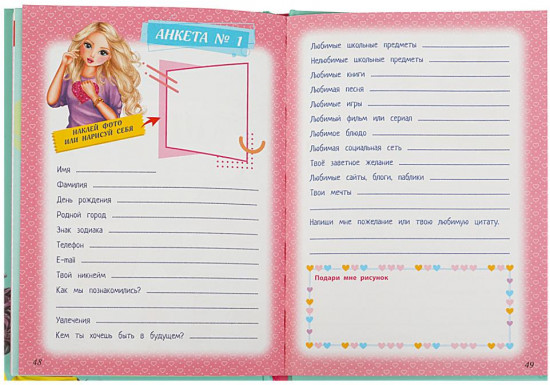 АНКЕТА № 1
НАКЛЕЙ ФОТО
ИЛИ НАРИСУЙ СЕБЯ
Имя
Фамилия
День рождения
Родной город
Знак зодиака
Телефон
E-mail
Твой никнейм
Как мы познакомились?
Увлечения
Кем ты хочешь быть в будущем?
48
Любимые школьные предметы
Нелюбимые школьные предметы
Любимые книги
Любимая песня
Любимые игры
Любимый фильм или сериал
Любимое блюдо
Любимая социальная сеть
Твоё заветное желание
Любимые сайты, блоги, паблики
Твои мечты
Напиши мне пожелание или твою любимую цитату.
Подари мне рисунок
49